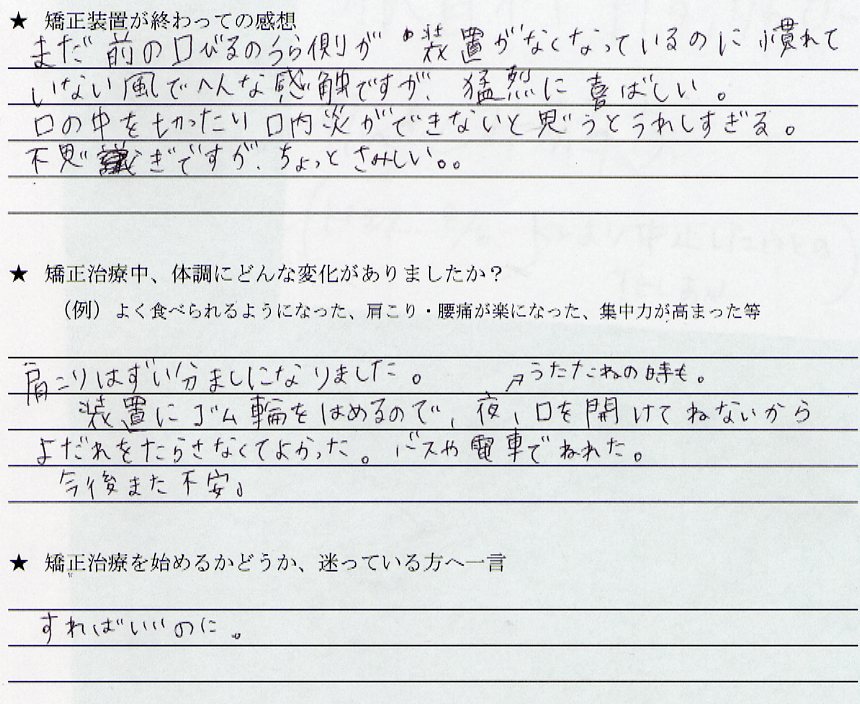 ★ 矯正装置が終わっての感想
まだ前の口びるのうら側が装置がなくなっているのに慣れて
いない風でへんな感触ですが、猛烈に喜ばしい。
口の中をもかったり口内炎ができないと思うとうれしすぎる。
不思議ぎですが、ちょっとさみしい。。
★ 矯正治療中、体調にどんな変化がありましたか？
（例）よく食べられるようになった、肩こり・腰痛が楽になった、集中力が高まった等
肩こりはずい分ましになりました。
↗うたたねの時も。
装置にゴム輪をはめるので、夜、口を開けてねないから
よだれをたらさなくてよかった。バスや電車でねれた。
今後また不安。
★ 矯正治療を始めるかどうか、迷っている方へ一言
すればいいのに。